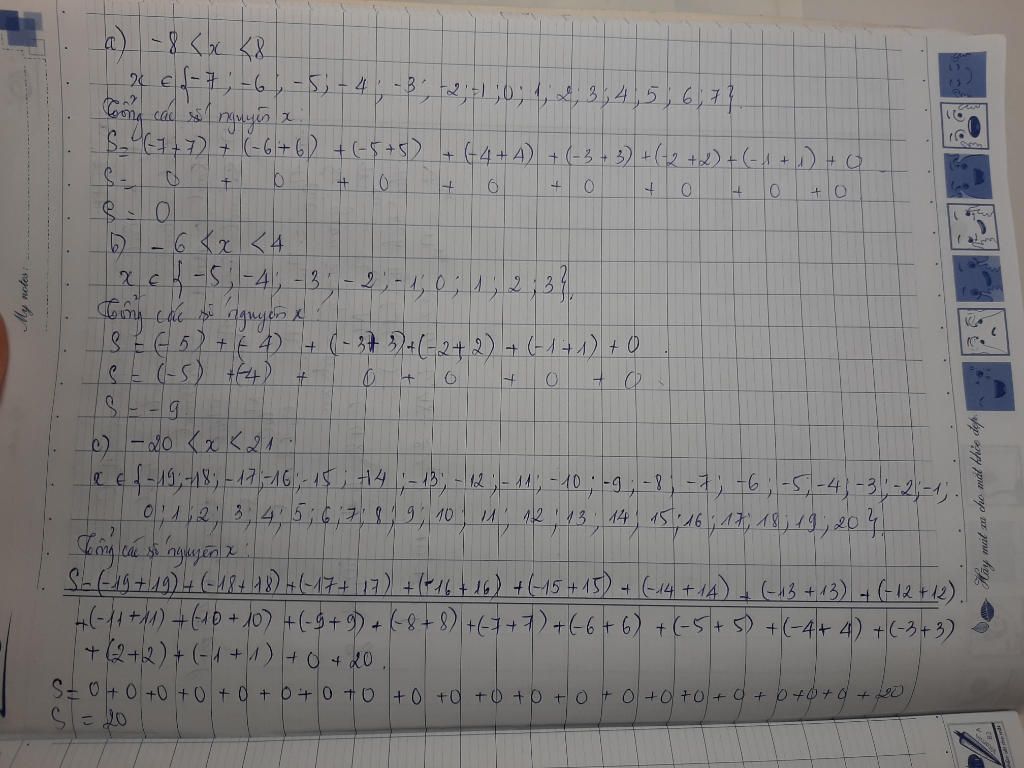 a) -8 < x < 8
x ∈ {-7; -6; -5; -4; -3; -2; -1; 0; 1; 2; 3; 4; 5; 6; 7}.
Tổng các số nguyên x:
S = (-7+7) + (-6+6) + (-5+5) + (-4+4) + (-3+3) + (-2+2) + (-1+1) + 0
S = 0 + 0 + 0 + 0 + 0 + 0 + 0 + 0
S = 0
b) -6 < x < 4
x ∈ {-5; -4; -3; -2; -1; 0; 1; 2; 3}.
Tổng các số nguyên x:
S = (-5) + (-4) + (-3+3) + (-2+2) + (-1+1) + 0.
S = (-5) + (-4) + 0 + 0 + 0 + 0.
S = -9
c) -20 < x < 21
x ∈ {-19; -18; -17; -16; -15; -14; -13; -12; -11; -10; -9; -8; -7; -6; -5; -4; -3; -2; -1;
0; 1; 2; 3; 4; 5; 6; 7; 8; 9; 10; 11; 12; 13; 14; 15; 16; 17; 18; 19; 20}.
Tổng các số nguyên x:
S = (-19+19) + (-18+18) + (-17+17) + (-16+16) + (-15+15) + (-14+14) + (-13+13) + (-12+12)
+ (-11+11) + (-10+10) + (-9+9) + (-8+8) + (-7+7) + (-6+6) + (-5+5) + (-4+4) + (-3+3)
+ (2+2) + (-1+1) + 0 + 20.
S = 0 + 0 + 0 + 0 + 0 + 0 + 0 + 0 + 0 + 0 + 0 + 0 + 0 + 0 + 0 + 0 + 0 + 0 + 0 + 0 + 20
S = 20
My notes:
Hãy mát xa cho mắt thêm đẹp.